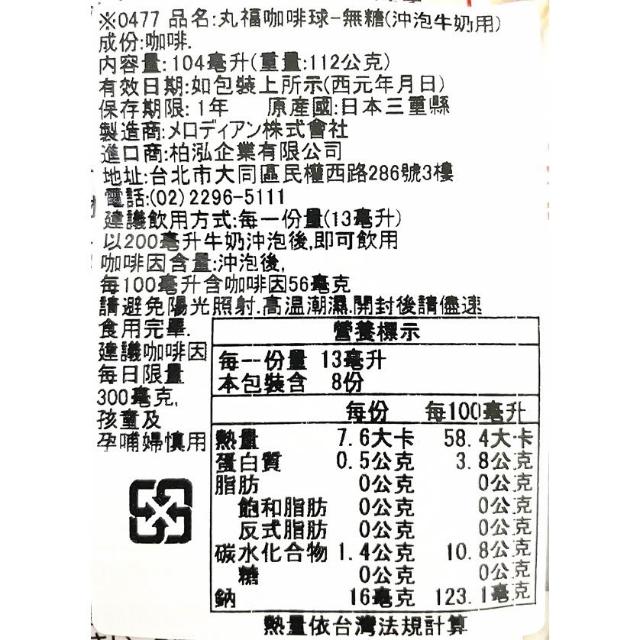 ※0477 品名:丸福咖啡球-無糖(沖泡牛奶用)
成份:咖啡.
內容量:104毫升(重量:112公克)
有效日期:如包裝上所示(西元年月日)
保存期限:1年 原產國:日本三重縣
製造商:メロディアン株式會社
進口商:柏泓企業有限公司
地址:台北市大同區民權西路286號3樓
電話:(02)2296-5111
建議飲用方式:每一份量(13毫升)
以200毫升牛奶沖泡後,即可飲用
咖啡因含量:沖泡後,
每100毫升含咖啡因56毫克
請避免陽光照射.高溫潮濕.開封後請儘速
食用完畢.
建議咖啡因
每日限量
300毫克,
孩童及
孕哺婦慎用
營養標示
每一份量 13毫升
本包裝含 8份
每份 每100毫升
熱量 7.6大卡 58.4大卡
蛋白質 0.5公克 3.8公克
脂肪 0公克 0公克
飽和脂肪 0公克 0公克
反式脂肪 0公克 0公克
碳水化合物 1.4公克 10.8公克
糖 0公克 0公克
鈉 16毫克 123.1毫克
熱量依台灣法規計算